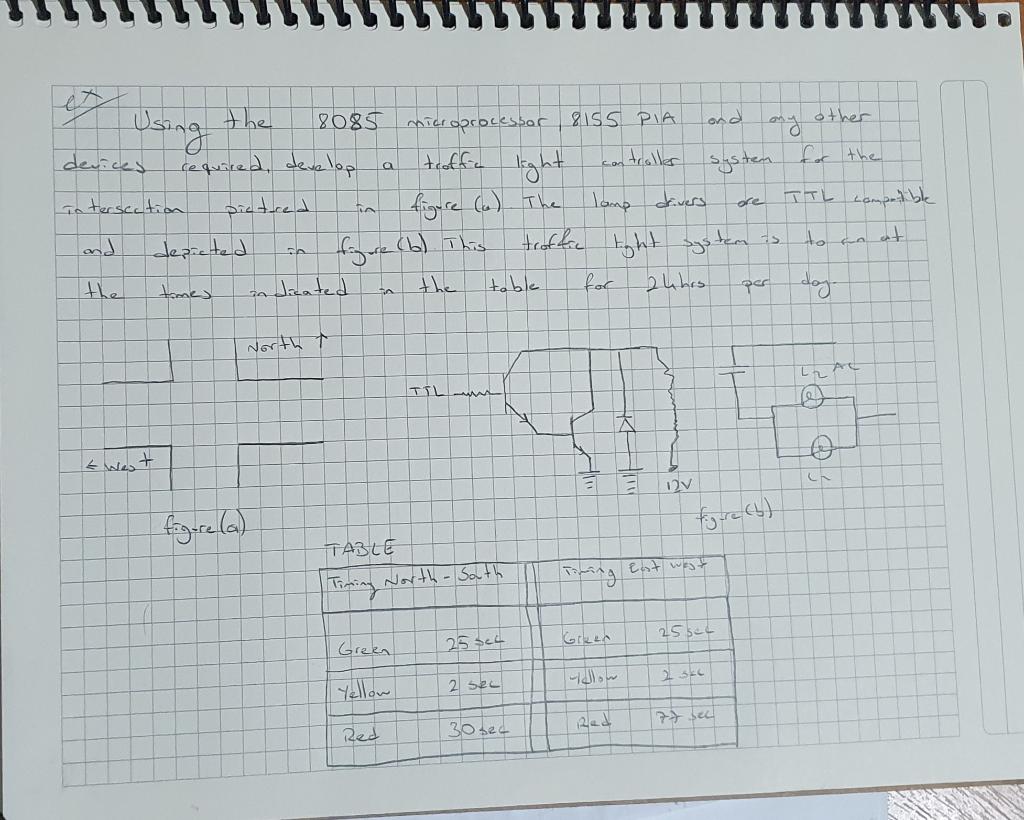 ex
Using the 8085 microprocessor, 8155 PIA and any other
devices required, develop a traffic light controller system for the
intersection pictured in figure (a) The lamp drivers are TTL compatible
and depicted in figure (b) This traffic light system is to run at
the times indicated in the table for 24hrs per day.
North ↑
← West
figure (a)
TTL
12V
L2 AC
figure (b)
TABLE
Timing North - South Timing East West
Green 25 sec Green 25 sec
Yellow 2 sec Yellow 2 sec
Red 30 sec Red 77 sec